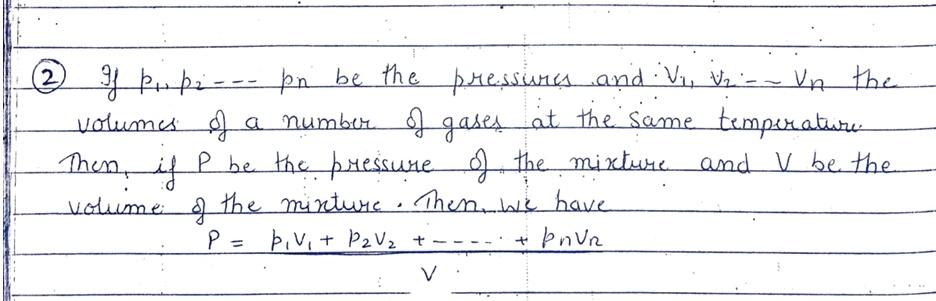 ② If p₁, p₂ --- pn be the pressures and V₁, V₂ -- Vn the
volumes of a number of gases at the same temperature
Then, if P be the pressure of the mixture and V be the
volume of the mixture. Then, we have
P = p₁V₁ + p₂V₂ + ----- + pnVn
V